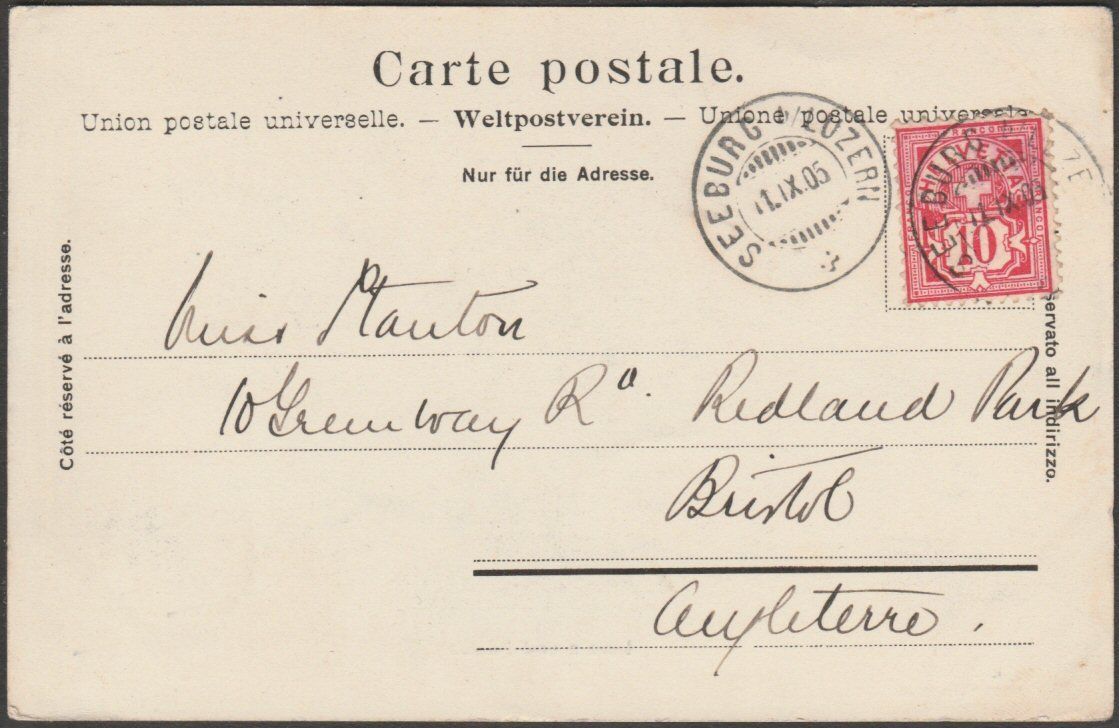 Carte postale.
Union postale universelle. — Weltpostverein. — Unione postale universale
Nur für die Adresse.
SEEBURG b/LUZERN
1.IX.05
HELVETIA
10
SEEBURG
1.IX.05
Côté réservé à l'adresse.
servato all indirizzo.
Miss Stanton
10 Greenway Rd. Redland Park
Bristol
Angleterre.